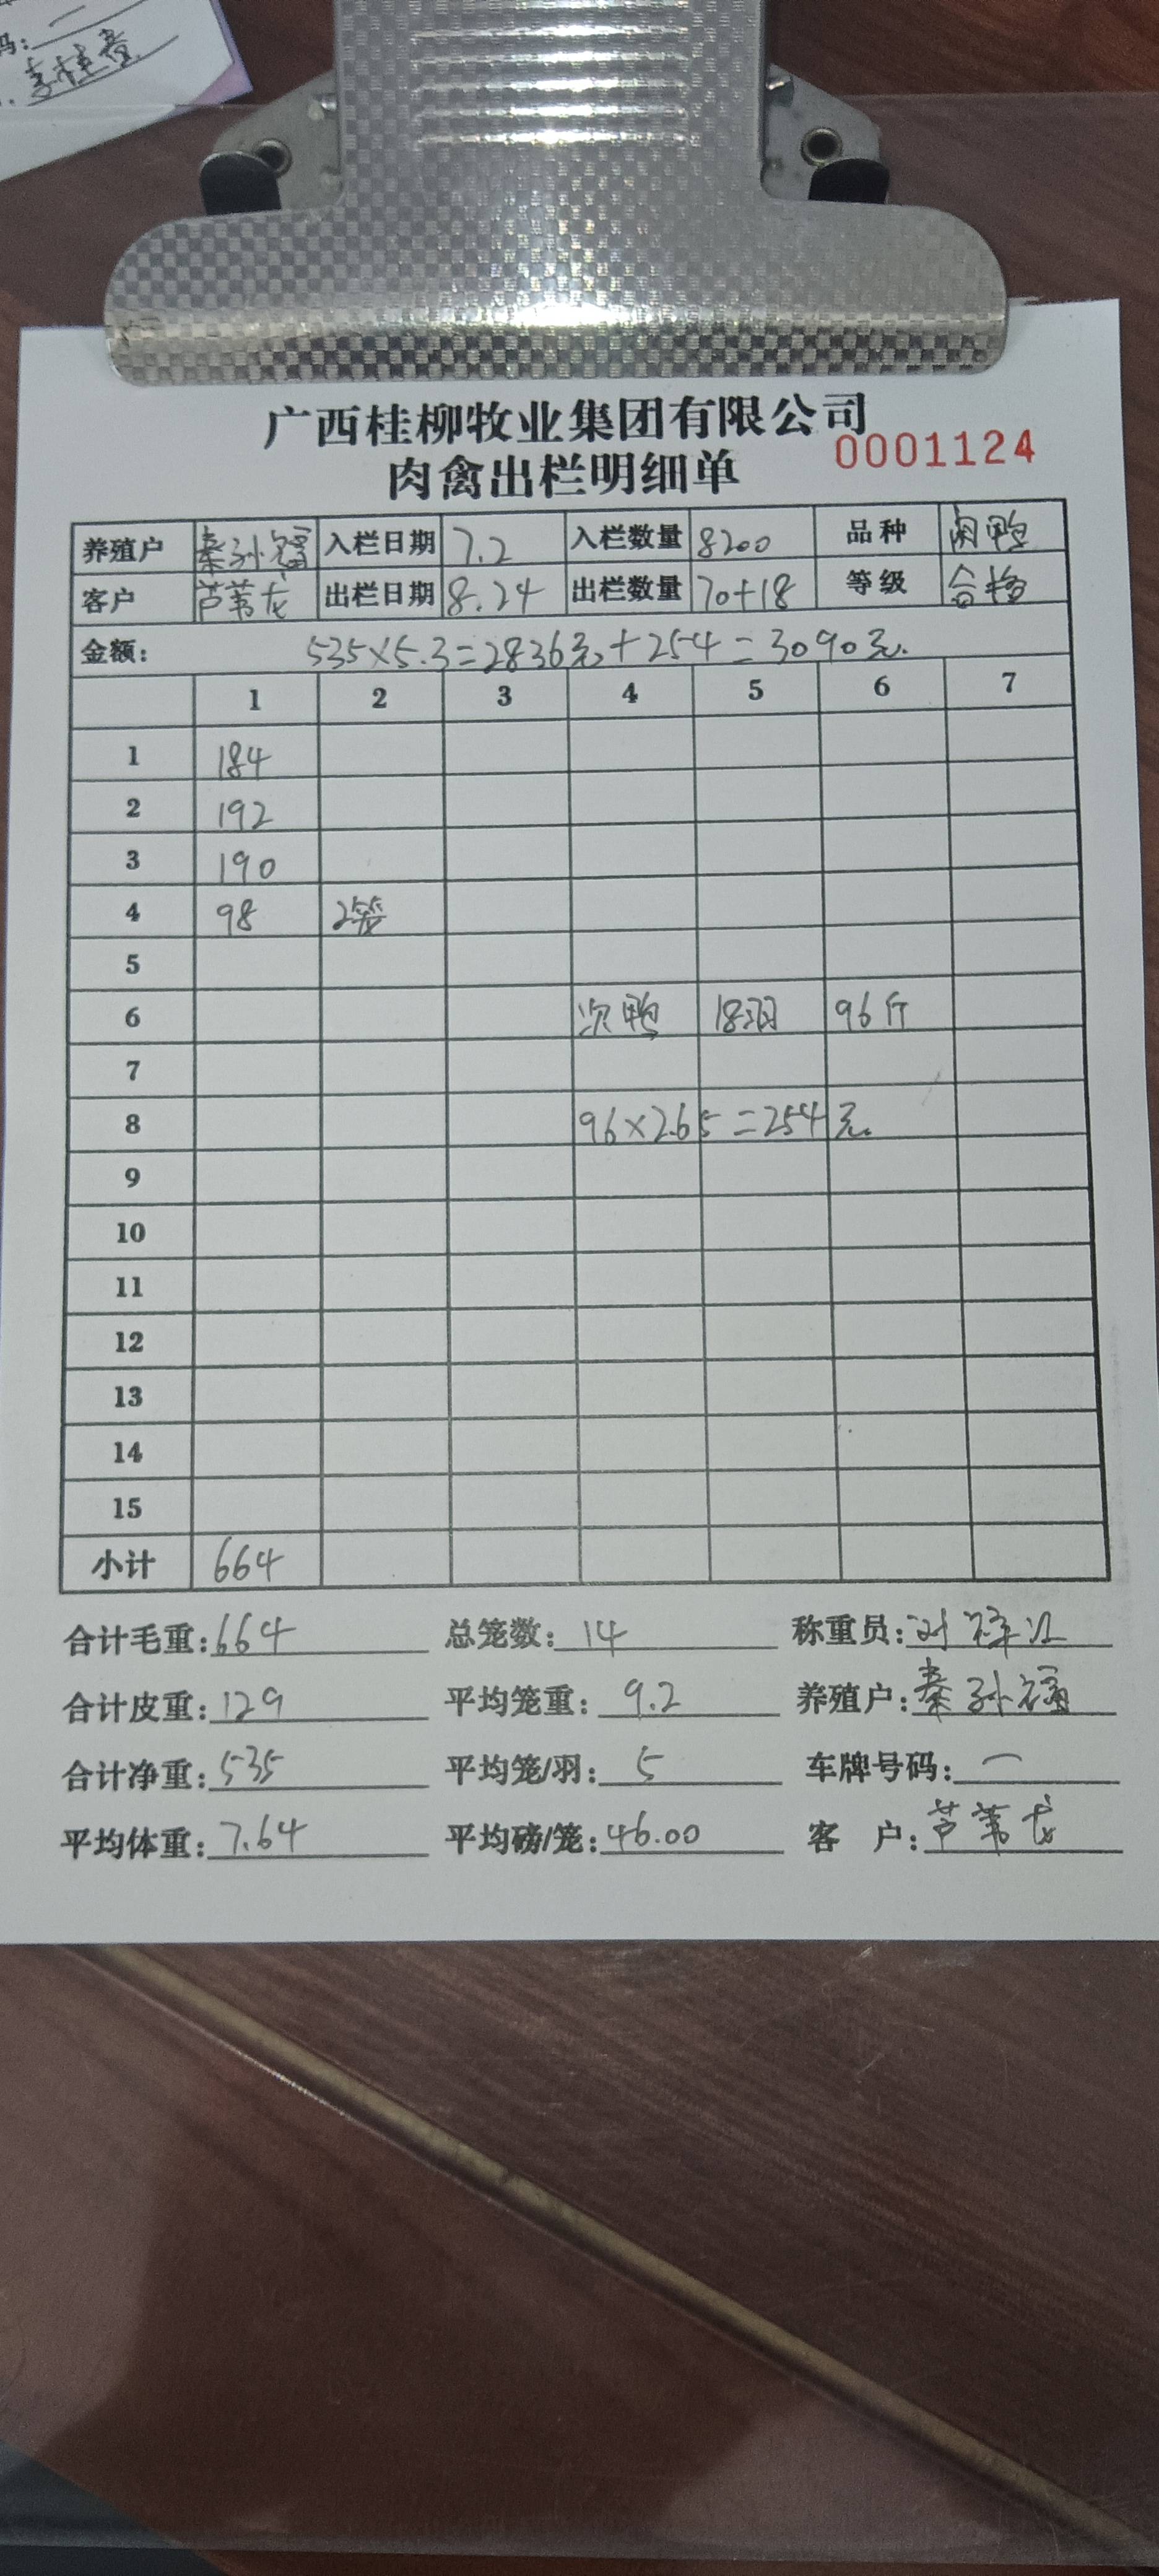 码:
李桂意
广西桂柳牧业集团有限公司
0001124
肉禽出栏明细单
养殖户 秦孙福 入栏日期 7.2 入栏数量 8200 品种 闲鸭
客户 芦苇龙 出栏日期 8.24 出栏数量 70+18 等级 合格
金额: 535×5.3=2836元+254=3090元.
1 2 3 4 5 6 7
1 184
2 192
3 190
4 98 2笼
5
6 次鸭 18羽 96斤
7
8 96×2.65=254元.
9
10
11
12
13
14
15
小计 664
合计毛重: 664 总笼数: 14 称重员:
合计皮重: 129 平均笼重: 9.2 养殖户: 秦孙福
合计净重: 535 平均笼/羽: 5 车牌号码: 一
平均体重: 7.64 平均磅/笼: 46.00 客 户: 芦苇龙